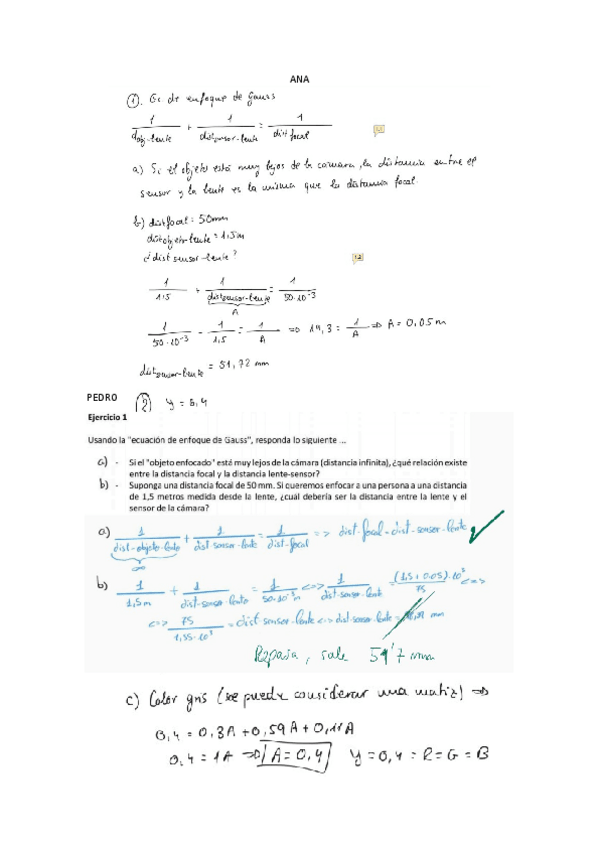 ANA
① Ec de enfoque de Gauss
1/dobj-lente + 1/distsensor-lente = 1/dist focal
a) Si el objeto está muy lejos de la cámara, la distancia entre el
sensor y la lente es la misma que la distancia focal
b) dist focal = 50mm
dist objeto-lente = 1,5 m
¿dist sensor-lente?
1/1.5 + 1/distsensor-lente = 1/50·10⁻³
A
1/50·10⁻³ - 1/1,5 = 1/A => 19,3 = 1/A => A = 0,05 m
distsensor-lente = 51,72 mm
PEDRO ② Y = 0,4
Ejercicio 1
Usando la "ecuación de enfoque de Gauss", responda lo siguiente ...
a) - Si el "objeto enfocado" está muy lejos de la cámara (distancia infinita), ¿qué relación existe
entre la distancia focal y la distancia lente-sensor?
b) - Suponga una distancia focal de 50 mm. Si queremos enfocar a una persona a una distancia
de 1,5 metros medida desde la lente, ¿cuál debería ser la distancia entre la lente y el
sensor de la cámara?
a) 1/dist-objeto-lente + 1/dist sensor-lente = 1/dist-focal => dist-focal = dist-sensor-lente
∞
b) 1/1,5m + 1/dist-sensor-lente = 1/50·10⁻³m <=> 1/dist-sensor-lente = 75 <=>
<=> 75/1,55·10³ = dist-sensor-lente <=> dist-sensor-lente = mm
Repasa, sale 51'7 mm
c) Color gris (se puede considerar una matiz) =>
0,4 = 0,3A + 0,59A + 0,11A
0,4 = 1A => A = 0,4 Y = 0,4 = R = G = B